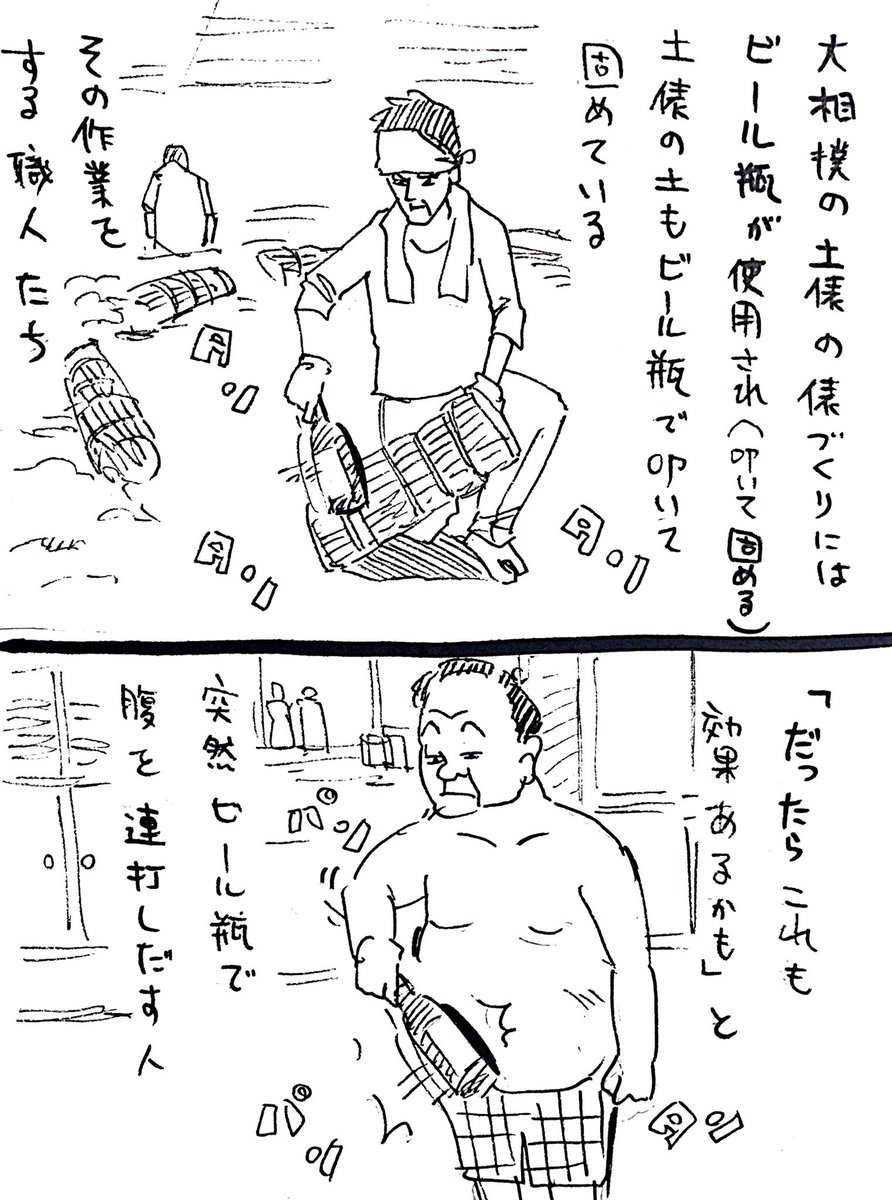 大相撲の土俵の俵づくりには
ビール瓶が使用され（叩いて固める）
土俵の土もビール瓶で叩いて
固めている
その作業を
する職人たち
「だったらこれも
効果あるかも」と
突然ビール瓶で
腹を連打しだす人